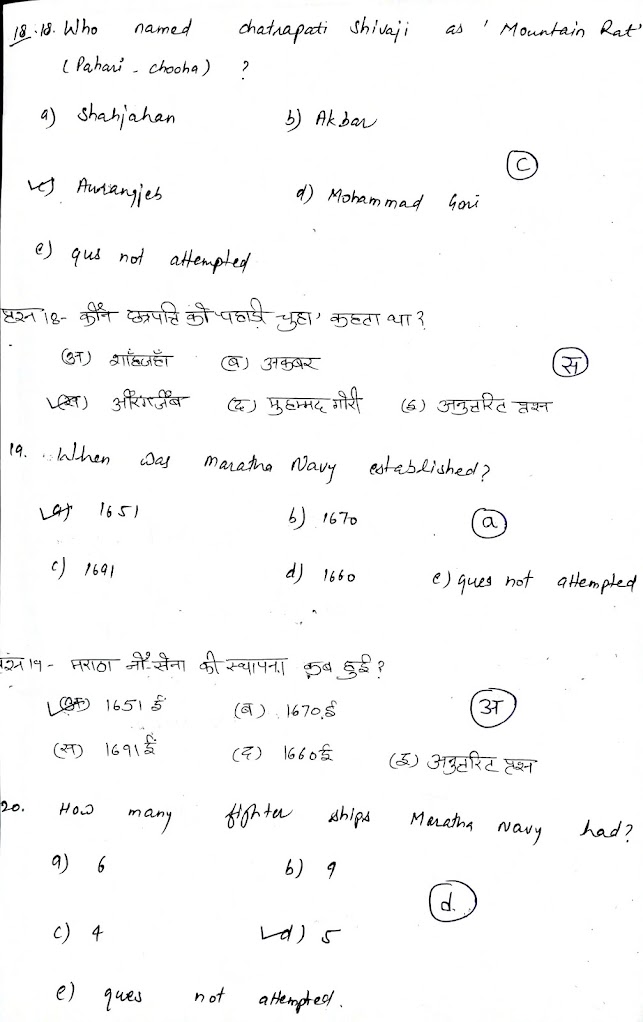 18. 18. Who named chatrapati Shivaji as 'Mountain Rat'
(Pahari - chooha) ?
a) Shahjahan b) Akbar
(C)
c) Aurangjeb d) Mohammad Gori
e) qus not attempted
प्रश्न 18- कौन छत्रपति को 'पहाड़ी चुहा' कहता था?
(अ) शाँहजहाँ (ब) अकबर (स)
(स) औरंगजेब (द) मुहम्मद गौरी (इ) अनुत्तरित प्रश्न
19. When was maratha Navy established?
a) 1651 b) 1670 (a)
c) 1691 d) 1660 e) ques not attempted
प्रश्न 19- मराठा नौ-सेना की स्थापना कब हुई?
(अ) 1651 ई (ब) 1670 ई (अ)
(स) 1691 ई (द) 1660 ई (इ) अनुत्तरित प्रश्न
20. How many fighter ships Maratha Navy had?
a) 6 b) 9
(d.)
c) 4 d) 5
e) ques not attempted.